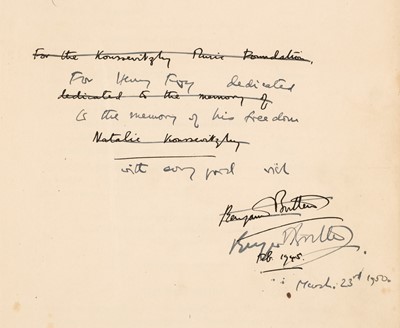 For the Koussevitzky Music Foundation,
For Henry dedicated
dedicated to the memory of
to the memory of his freedom
Natalie Koussevitzky
with every good wish
Benjamin Britten
Benjamin Britten
Feb. 1945.
March 23rd 1950.